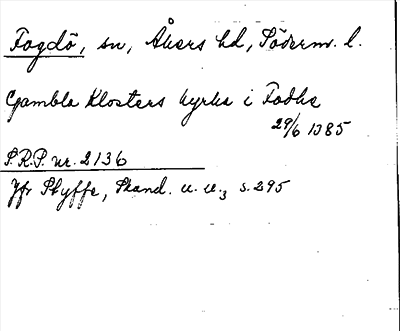 Fogdö, sn, Åkers hd, Söderm. l.
Gamble Klosters kyrka i Fodhe
29/6 1385
S.R.P. nr. 2136
Jfr Styffe, Skand. u. u.3 s. 295